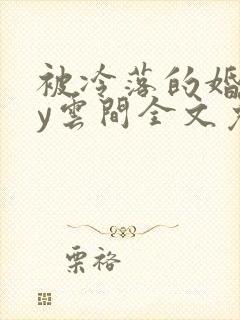 被冷落的婚
y雲間全文
栗裕